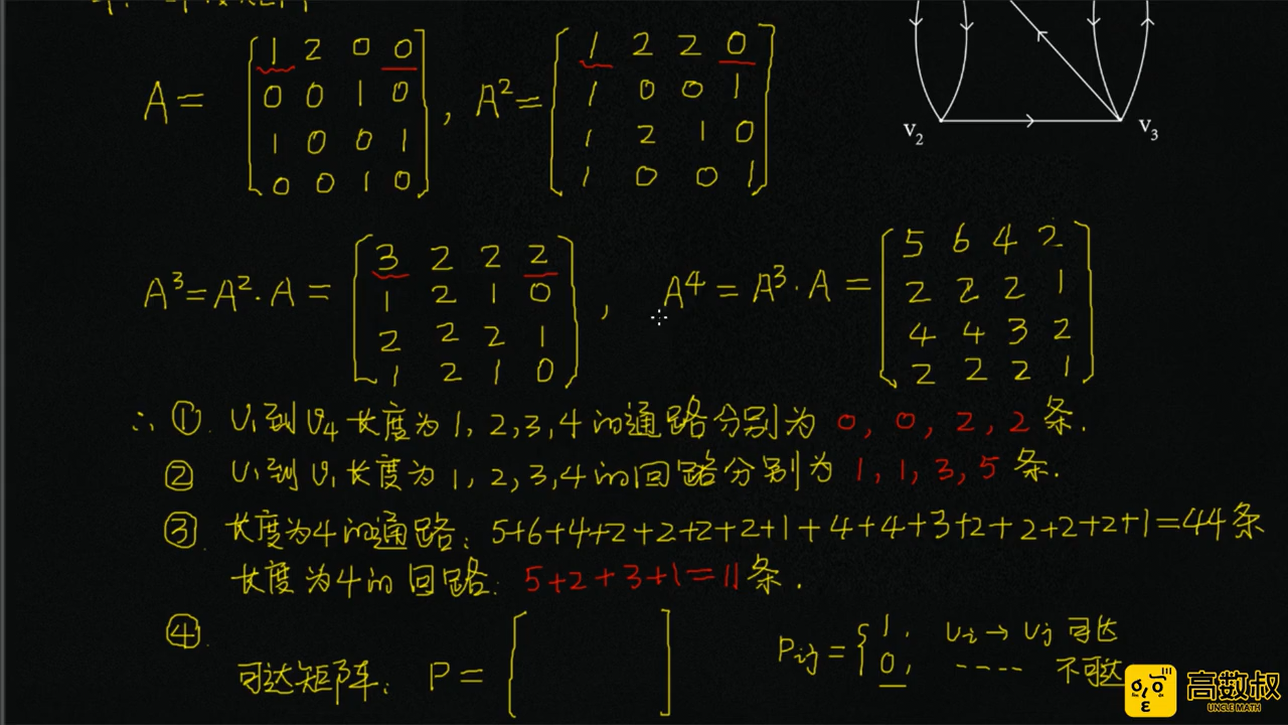 A = [1 2 0 0
0 0 1 0
1 0 0 1
0 0 1 0] , A² = [1 2 2 0
1 0 0 1
1 2 1 0
1 0 0 1]
v₂ v₃
A³ = A²·A = [3 2 2 2
1 2 1 0
2 2 2 1
1 2 1 0] , A⁴ = A³·A = [5 6 4 2
2 2 2 1
4 4 3 2
2 2 2 1]
∴ ①. v₁到v₄长度为1, 2, 3, 4的通路分别为 0, 0, 2, 2 条.
② v₁到v₁长度为1, 2, 3, 4的回路分别为 1, 1, 3, 5 条.
③. 长度为4的通路: 5+6+4+2+2+2+2+1+4+4+3+2+2+2+2+1=44条
长度为4的回路: 5+2+3+1=11条.
④.
可达矩阵: P = [ ]
Pij = { 1, vi → vj 可达
0, ---- 不可达
高数叔
UNCLE MATH